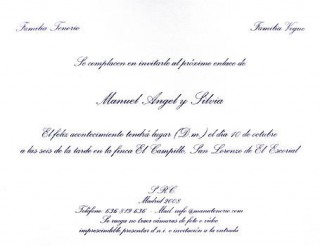 Familia Tenorio
Familia Vogue
Se complacen en invitarle al próximo enlace de
Manuel Angel y Silvia
El feliz acontecimiento tendrá lugar (D.m.) el día 10 de octubre
a las seis de la tarde en la finca El Campillo, San Lorenzo de El Escorial
S.R.C.
Madrid 2008
Teléfono 636 819 636 Mail
Se ruega no traer cámaras de foto o vídeo
imprescindible presentar d.n.i. e invitación a la entrada